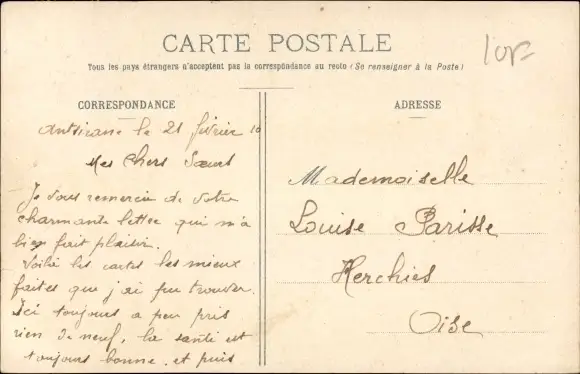 CARTE POSTALE
Tous les pays étrangers n'acceptent pas la correspondance au recto (Se renseigner à la Poste)
CORRESPONDANCE
Antsirane le 21 février 10
Mes Chers Sœurs
Je vous remercie de votre
charmante lettre qui m'a
bien fait plaisir.
Voilà les cartes les mieux
faites que j'ai pu trouver.
Ici toujours a peu près
rien de neuf, la santé est
toujours bonne, et puis
ADRESSE
Mademoiselle
Louise Parisse
Herchies
Oise